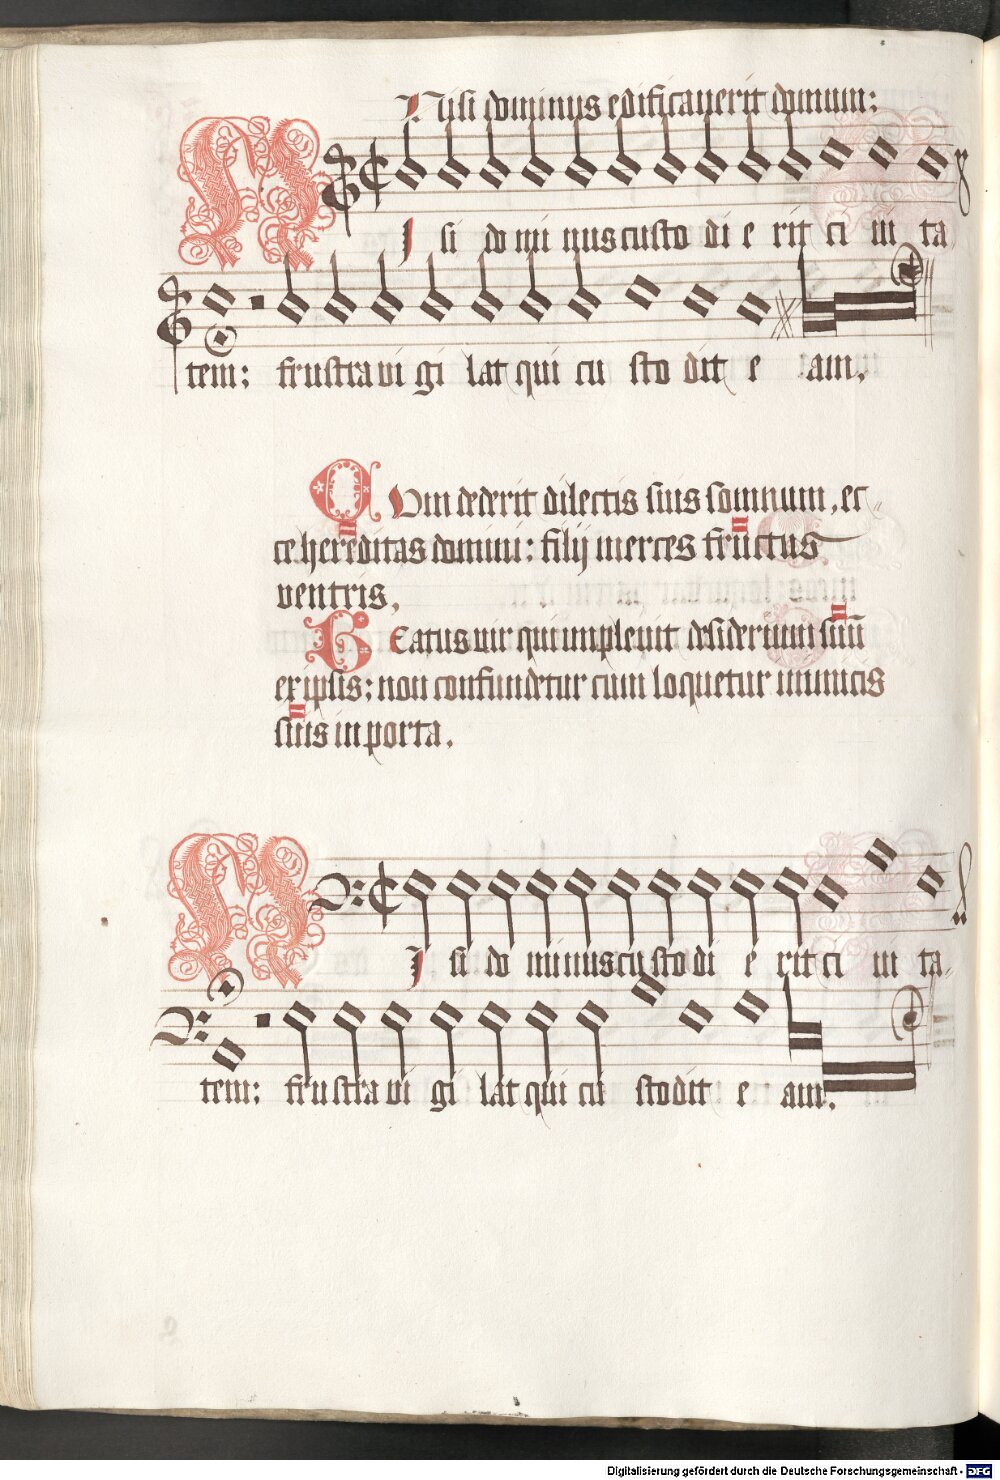 Nisi dominus edificauerit domum:
N I si do mi nus custo di e rit ci ui ta
tem: frustra ui gi lat qui cu sto dit e am.
Q Vm dederit dilectis suis somnum, ec
ce hereditas domini: filij merces fructus
ventris.
B Eatus uir qui impleuit desiderium suū
ex ipsis: non confundetur cum loquetur inimicis
suis in porta.
N I si do minus custo di e rit ci ui ta
tem: frustra ui gi lat qui cu stodit e am.
Digitalisierung gefördert durch die Deutsche Forschungsgemeinschaft - DFG